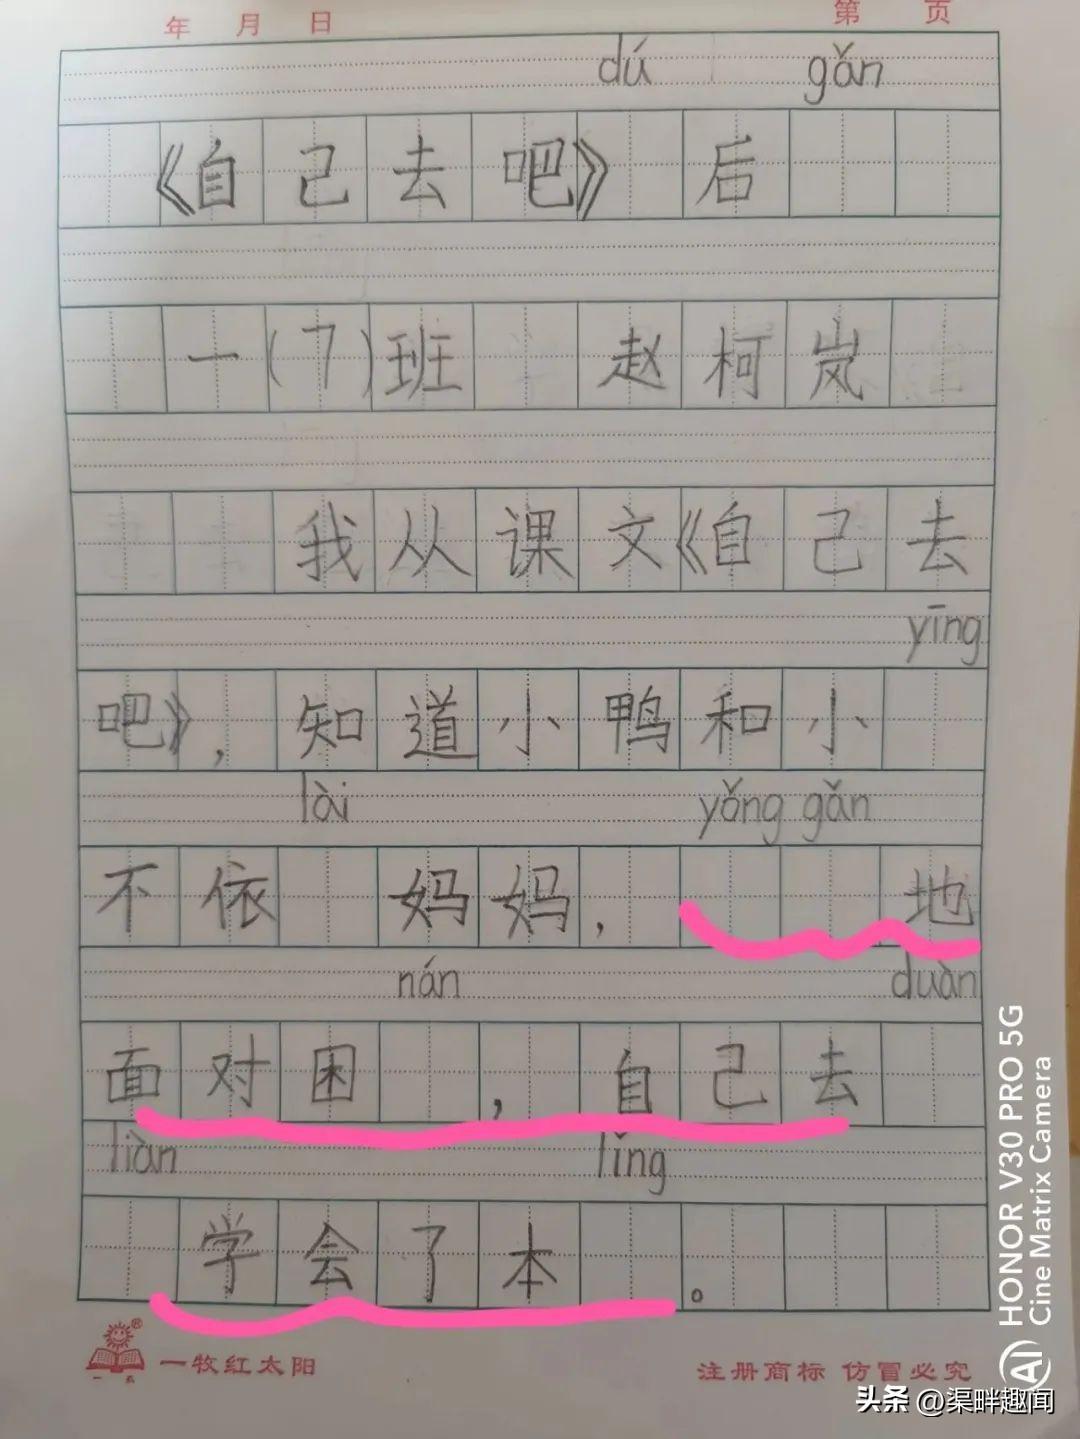 年 月 日 第 页
dú gǎn
《自己去吧》 后
一(7)班 赵柯岚
我从课文《自己去
yīng
吧》，知道小鸭和小
lài yǒng gǎn
不依 妈妈， 地
nán duàn
面对困 ，自己去
liàn lǐng
学会了本 。
一牧红太阳
注册商标 仿冒必究
HONOR V30 PRO 5G
Cine Matrix Camera
AI
头条 @渠畔趣闻